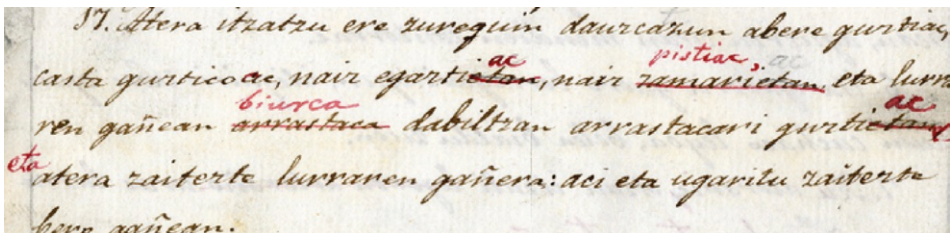 17. Atera itzatzu ere zurequin daurcazun abere gurtiac,
pistiac, ac
casta gurticoac, nair egartietan ac, nair zamarietan, eta lurra
biurca ac
ren gañean arrastaca dabiltzan arrastacari gurtietan
eta atera zaiterte lurraren gañera: aci eta ugaritu zaiterte
bere gañean.